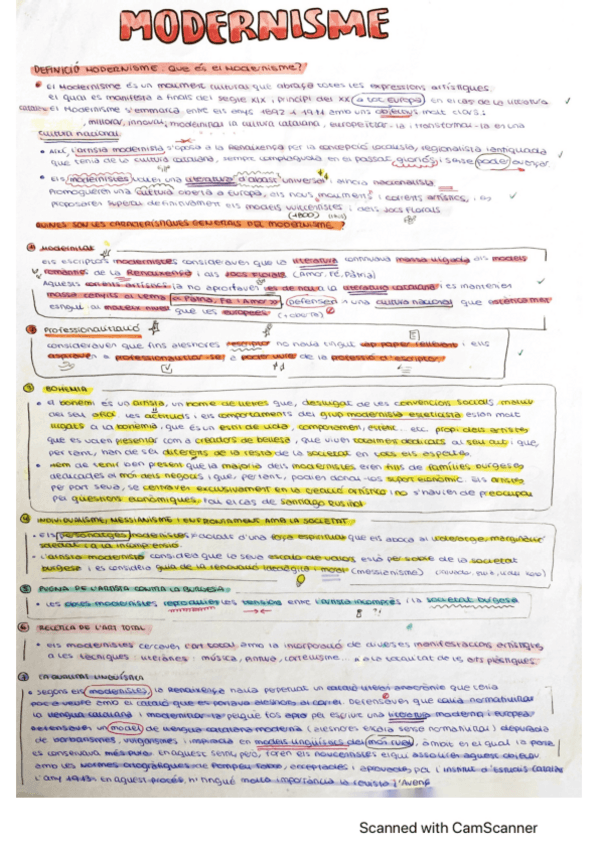 MODERNISME
DEFINICIÓ MODERNISME: Què és el Modernisme?
• El Modernisme és un moviment cultural que abraça totes les expressions artístiques,
el qual es manifesta a finals del segle XIX i principi del XX a tot Europa, en el cas de la literatura
catalana el Modernisme s'emmarca entre els anys 1892 i 1911 amb uns objectius molt clars:
millorar, innovar, modernitzar la cultura catalana, europeitzar-la i transformar-la en una
cultura nacional
• Així, l'artista modernista s'oposa a la Renaixença per la concepció localista, regionalista i antiquada
que tenia de la cultura catalana, sempre emmirallada en el passat gloriós i sense poder avançar.
• Els modernistes volien una literatura d'abast universal i alhora nacionalista
Promogueren una cultura oberta a Europa, els nous moviments i corrents artístics, i es
proposaren superar definitivament els models vuitcentistes i dels Jocs Florals
(1800)
QUINES SÓN LES CARACTERÍSTIQUES GENERALS DEL MODERNISME?
1 Modernitat
Els escriptors modernistes consideraven que la literatura continuava massa lligada als models
romàntics de la Renaixença i als Jocs Florals (Amor, Fe, Pàtria)
Aquests corrents artístics ja no aportaven res de nou a la literatura catalana i es mantenien
massa cenyits al lema "Pàtria, Fe i Amor". Defensen una cultura nacional que estèticament
estigui al mateix nivell que les europees (+ oberta)
2 Professionalització
Consideraven que fins aleshores l'escriptor no havia tingut cap paper rellevant i ells
aspiraven a professionalitzar-se i poder viure de la professió d'escriptor.
3 BOHÈMIA
• El bohemi és un artista, un home de lletres que, deslligat de les convencions socials, malviu
del seu ofici. Les actituds i els comportaments del grup modernista esteticista estan molt
lligats a la bohèmia, que és un estil de vida, comportament, estètic... etc. propi dels artistes
que es volen presentar com a creadors de bellesa, que viuen totalment dedicats al seu art i que,
per tant, han de ser diferents de la resta de la societat en tots els aspectes.
• Hem de tenir ben present que la majoria dels modernistes eren fills de famílies burgeses
dedicades al món dels negocis i que, per tant, podien donar-los suport econòmic. Els artistes,
per part seva, se centraven exclusivament en la creació artística i no s'havien de preocupar
per qüestions econòmiques, tal el cas de Santiago Rusiñol
4 INDIVIDUALISME, MESSIANISME I ENFRONTAMENT AMB LA SOCIETAT
• Els personatges modernistes dotats d'una força espiritual que els aboca al lideratge, marginació
social i a la incomprensió
• L'artista modernista considera que la seva escala de valors està per sobre de la societat
burgesa i es considera guia de la renovació ideològica i moral (messianisme)
5 PUGNA DE L'ARTISTA CONTRA LA BURGESIA
• Les obres modernistes reprodueixen les tensions entre l'artista incomprès i la societat burgesa
6 RECERCA DE L'ART TOTAL
• Els modernistes cercaven l'art total amb la incorporació de diverses manifestacions artístiques
a les tècniques literàries: música, pintura, cartellisme... a la totalitat de les arts plàstiques.
7 CATALANITAT LINGÜÍSTICA
• Segons els modernistes, la Renaixença havia perpetuat un català literari anacrònic que tenia
poc a veure amb el català que es parlava aleshores al carrer. Defensaven que calia normativitzar
la llengua catalana i modernitzar-la perquè fos apta per escriure una literatura moderna i europea
Defensaven un model de llengua catalana moderna (aleshores encara sense normativitzar) depurada
de barbarismes, vulgarismes i inspirada en models lingüístics del món rural, àmbit en el qual la parla
es conservava més pura. En aquest sentit, però, foren els noucentistes els qui assoliren aquest objectiu
amb les Normes ortogràfiques de Pompeu Fabra, acceptades i aprovades per l'Institut d'Estudis Catalans
l'any 1913. En aquest procés, hi tingué molta importància la revista L'Avenç
Scanned with CamScanner